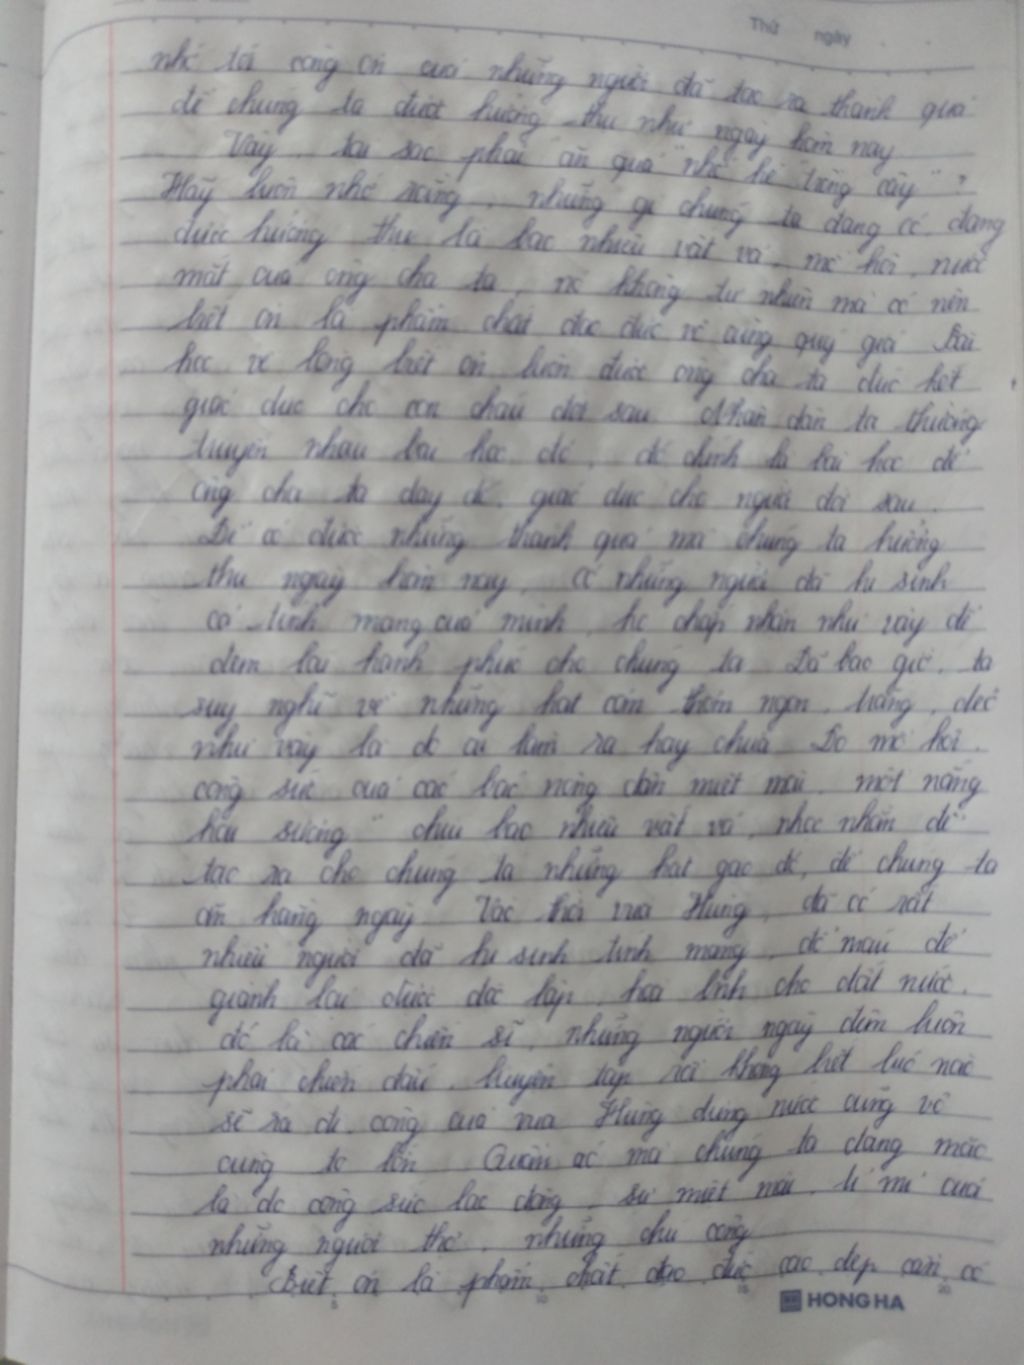 Thứ ngày
nhớ tới công ơn của những người đã tạo ra thành quả
để chúng ta được hưởng thụ như ngày hôm nay
Vậy, tại sao phải "ăn quả nhớ kẻ trồng cây"?
Hãy luôn nhớ rằng, những gì chúng ta đang có, đang
được hưởng thụ là bao nhiêu vất vả, mồ hôi, nước
mắt của ông cha ta, nó không tự nhiên mà có nên
biết ơn là phẩm chất đạo đức vô cùng quý giá Bài
học về lòng biết ơn luôn được ông cha ta đúc kết
giáo dục cho con cháu đời sau Nhân dân ta thường
truyền nhau bài học đó, đó chính là bài học để
ông cha ta dạy dỗ, giáo dục cho người đời sau.
Để có được những thành quả mà chúng ta hưởng
thụ ngày hôm nay, có những người đã hi sinh
cả tính mạng của mình, họ chấp nhận như vậy để
đem lại hạnh phúc cho chúng ta Đã bao giờ, ta
suy nghĩ về những hạt cơm thơm ngon, trắng, dẻo
như vậy là do ai làm ra hay chưa Do mồ hôi,
công sức của các bác nông dân miệt mài, một nắng
hai sương" chịu bao nhiêu vất vả, nhọc nhằn để
tạo ra cho chúng ta những hạt gạo đó, để chúng ta
ăn hàng ngày Vào thời vua Hùng, đã có rất
nhiều người đã hi sinh tính mạng, đổ máu để
giành lại được độc lập, hòa bình cho đất nước,
đó là các chiến sĩ, những người ngày đêm luôn
phải chiến đấu, luyện tập rồi không biết lúc nào
sẽ ra đi, công của vua Hùng dựng nước cũng vô
cùng to lớn Quần áo mà chúng ta đang mặc
là do công sức lao động, sự miệt mài, tỉ mỉ của
những người thợ, những chú công
Biết ơn là phẩm chất đạo đức cao đẹp cần có
HONG HA